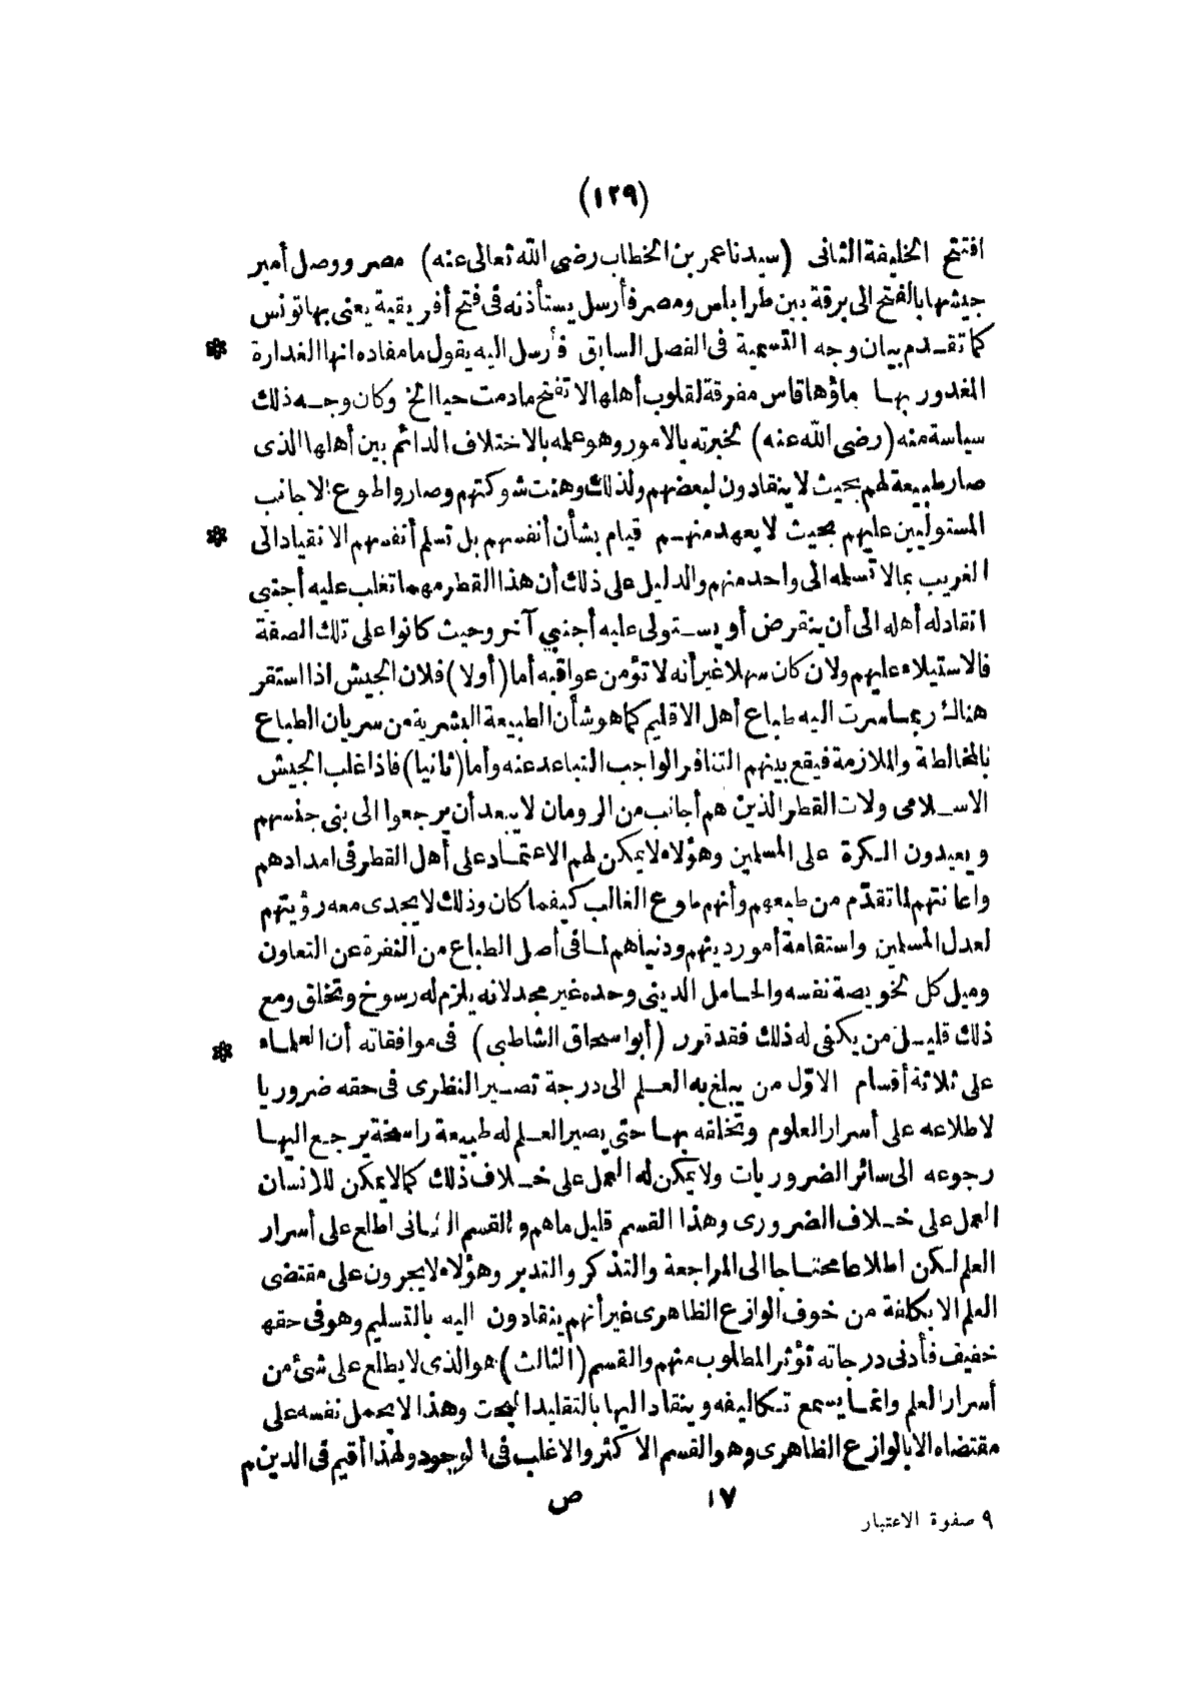 (١٢٩)
افتتح الخليفة الثانى (سيدنا عمر بن الخطاب رضى الله تعالى عنه) مصر ووصل أمير
جيشها بالفتح الى برقة بين طرابلس ومصر فأرسل يستأذنه فى فتح أفريقية يعنى بها تونس
كما تقدم بيان وجه التسمية فى الفصل السابق فأرسل اليه يقول ما مفاده انها الغدارة *
المغدور بها ماؤها قاس مفرقة لقلوب أهلها لا تفتح مادمت حيا الخ وكان وجه ذلك
سياسة منه (رضى الله عنه) لخبرته بالامور وهو علمه بالاختلاف الدائم بين أهلها الذى
صار طبيعة لهم بحيث لا ينقادون لبعضهم ولذلك وهنت شوكتهم وصاروا طوع الاجانب
المستوليين عليهم بحيث لا يعهد منهم قيام بشأن أنفسهم بل تسلم أنفسهم الانقياد الى *
الغريب بما لا تسلمه الى واحد منهم والدليل على ذلك أن هذا القطر مهما تغلب عليه أجنبي
انقاد له أهله الى أن ينقرض أو يستولى عليه أجنبي آخر وحيث كانوا على تلك الصفة
فالاستيلاء عليهم ولان كان سهلا غير أنه لا تؤمن عواقبه أما (أولا) فلان الجيش اذا استقر
هناك ربما سرت اليه طباع أهل الاقليم كما هو شأن الطبيعة البشرية من سريان الطباع
بالمخالطة والملازمة فيقع بينهم التنافر الواجب التباعد عنه وأما (ثانيا) فاذا غلب الجيش
الاسلامى ولات القطر الذين هم أجانب من الرومان لا يبعد أن يرجعوا الى بنى جنسهم
ويعيدون الكرة على المسلمين وهؤلاء لا يمكن لهم الاعتماد على أهل القطر فى امدادهم
واعانتهم لما تقدّم من طبعهم وأنهم طوع الغالب كيفما كان وذلك لا يجدى معه رؤيتهم
لعدل المسلمين واستقامة أمور دينهم ودنياهم لما فى أصل الطباع من النفرة عن التعاون
وميل كل لخويصة نفسه والحامل الدينى وحده غير مجد لانه يلزم له رسوخ وتخلق ومع
ذلك قليل من يكفى له ذلك فقد قرر (أبواسحاق الشاطبى) فى موافقاته أن العلماء *
على ثلاثة أقسام الاوّل من يبلغ به العلم الى درجة تصير النظرى فى حقه ضروريا
لاطلاعه على أسرار العلوم وتخلقه بها حتى يصير العلم له طبيعة راسخة يرجع اليها
رجوعه الى سائر الضروريات ولا يمكن له العمل على خلاف ذلك كما لا يمكن للانسان
العمل على خلاف الضرورى وهذا القسم قليل ماهم والقسم الثانى اطلع على أسرار
العلم لكن اطلاعا محتاجا الى المراجعة والتذكر والتدبر وهؤلاء لا يجرون على مقتضى
العلم الا بكلفة من خوف الوازع الظاهرى غير أنهم ينقادون اليه بالتسليم وهو فى حقه
خفيف فأدنى درجاته تؤثر المطلوب منهم والقسم (الثالث) هو الذى لا يطلع على شئ من
أسرار العلم وانما يسمع تكاليفه وينقاد اليها بالتقليد البحت وهذا لا يحمل نفسه على
مقتضاه الا بالوازع الظاهرى وهو القسم الاكثر والاغلب فى الوجود ولهذا أقيم فى الدين م
١٧ ص
٩ صفوة الاعتبار